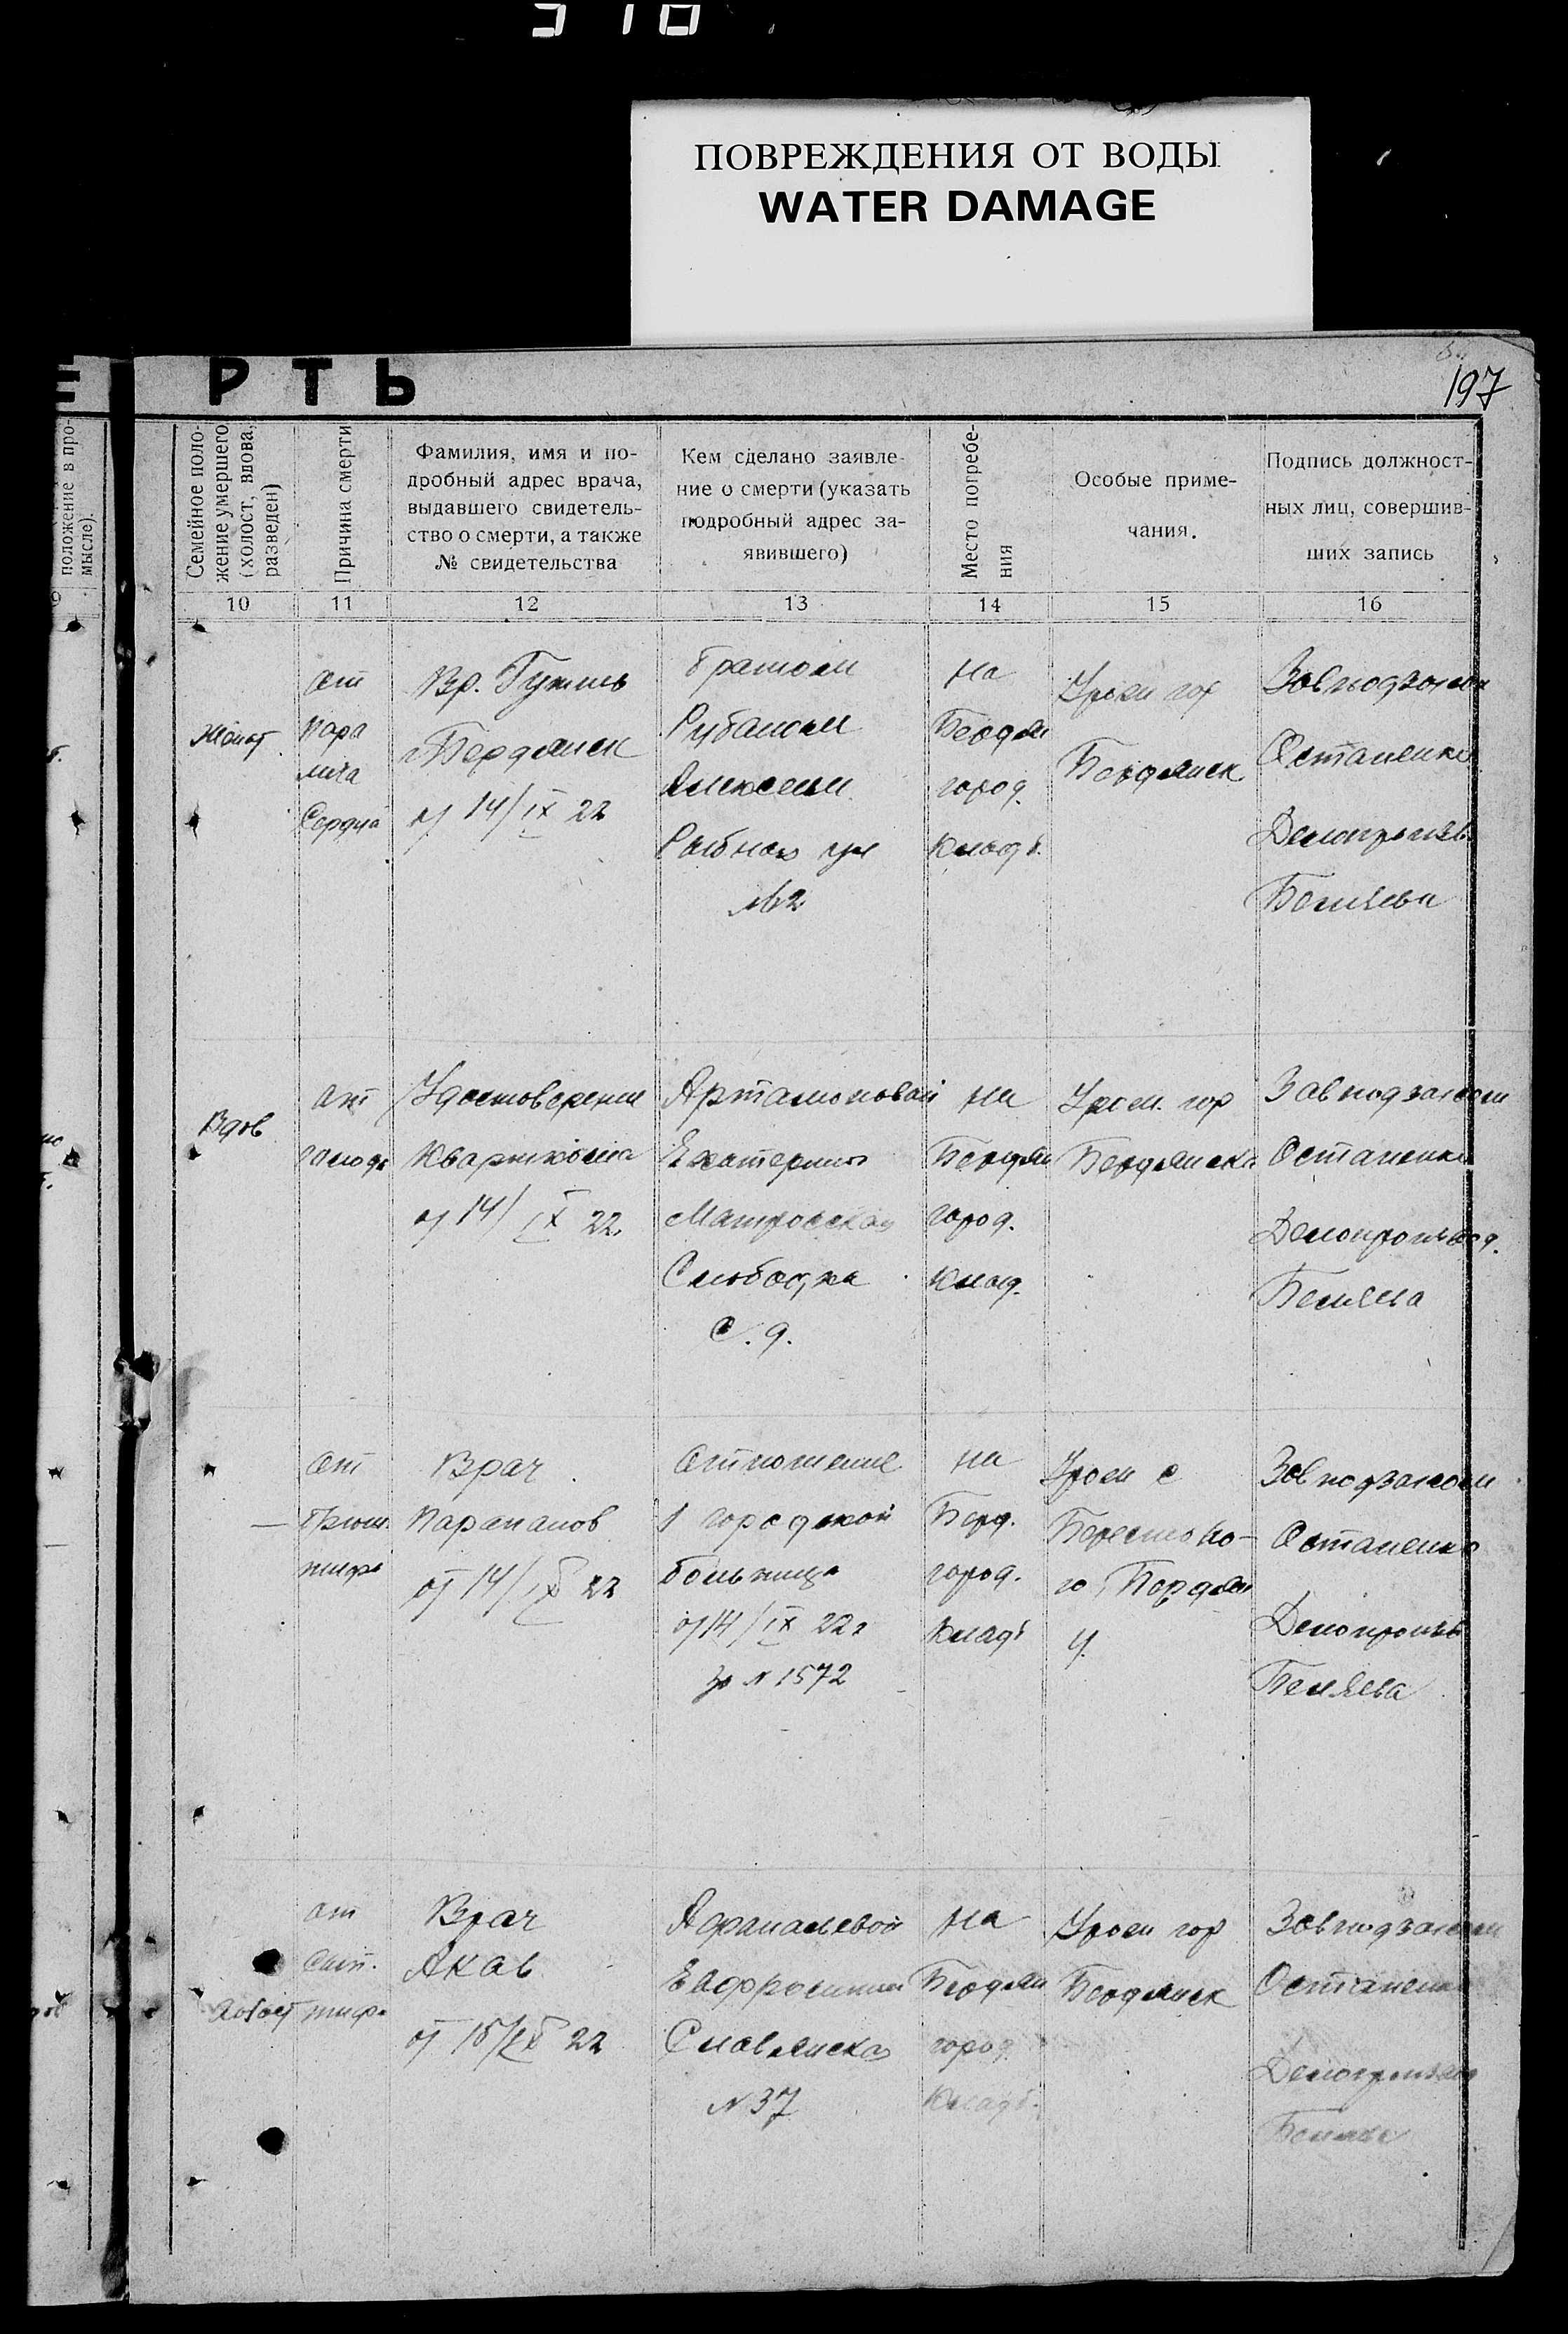 ПОВРЕЖДЕНИЯ ОТ ВОДЫ
WATER DAMAGE
197
РТЬ
положение в про-
мысле).
Семейное поло-
жение умершего
(холост, вдова,
разведен)
Причина смерти
Фамилия, имя и по-
дробный адрес врача,
выдавшего свидетель-
ство о смерти, а также
№ свидетельства
Кем сделано заявле-
ние о смерти (указать
подробный адрес за-
явившего)
Место погребе-
ния
Особые приме-
чания.
Подпись должност-
ных лиц, совершив-
ших запись
10
11
12
13
14
15
16
женат
от
пара
лича
сердца
Вр.
г Бердянск
от 14/IX 22
братом
Рубаном
Алексеем
ул
№2
на
Бердян
город.
кладб.
Уром гор
Бердянск
Завподзагсом
Остапенко
Делопроизв.
Беляева
Вдов
от
голода
Удостоверение
Квартхоза
от 14/IX 22.
Артамоновой
Екатерина
Матросская
Слободка
с. д.
на
Бердян
город.
клад.
Уром. гор
Бердянска
Завподзагсом
Остапенко
Делопроизвод.
Беляева
—
от
брюш.
тифа
Врач
Парапанов
от 14/IX 22
отношение
1 городской
больница
от 14/IX 22 г
за № 1572
на
Берд.
город.
кладб
Уром с
Берестово-
го Бердян
у.
Завподзагсом
Остапенко
Делопроизв
Беляева
холост
от
сып.
тифа
Врач
Акав
от 15/IX 22
Афанасьевой
Евфросиния
Славянская
№ 37
на
Бердян
город.
кладб.
Уром гор
Бердянск
Завподзагсом
Остапенко
Делопроизвод
Беляева